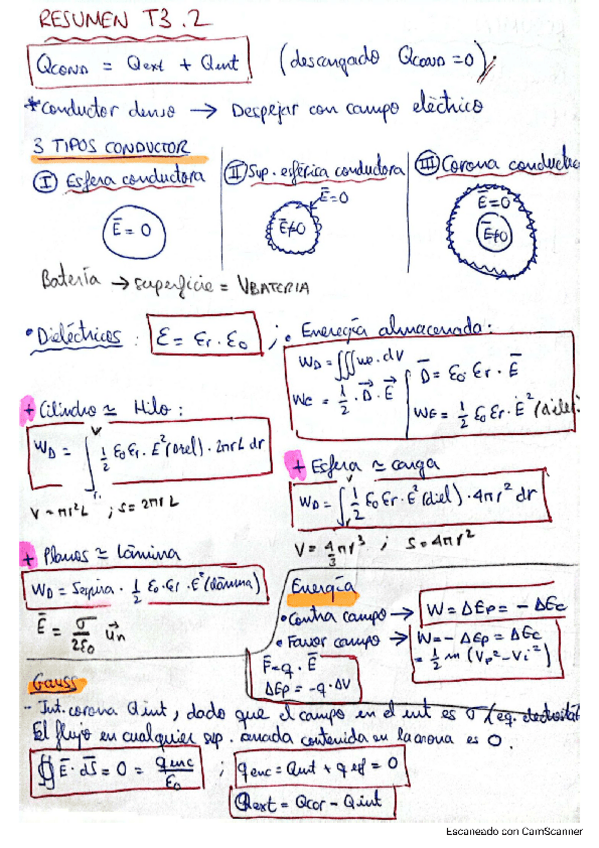 RESUMEN T3.2
QCOND = Qext + Qint (descargado QCOND = 0)
*Conductor denso → Despejar con campo eléctrico
3 TIPOS CONDUCTOR
I Esfera conductora
II Sup. esférica conductora
III Corona conducto
E̅ = 0
E̅=0
E̅≠0
E̅=0
E̅≠0
Batería → superficie = VBATERIA
• Dieléctricos : ε = εr · ε0 ; • Energía almacenada:
WD = ∭ we · dV
We = 1/2 · D⃗ · E⃗
D̅ = ε0 · εr · E̅
WE = 1/2 ε0 εr · E̅² (diel
+ Cilindro ≃ Hilo :
WD = ∫ 1/2 ε0 εr · E²(diel) · 2πrL dr
V = πr²L ; S = 2πrL
+ Esfera ≃ carga
WD = ∫ 1/2 ε0 εr · E²(diel) · 4πr² dr
V = 4/3 πr³ ; S = 4πr²
+ Planos ≃ Lámina
WD = · 1/2 ε0 · εr · E²(lámina)
E̅ = σ/2ε0 u⃗n
Energía
• Contra campo → W = ΔEp = - ΔEc
• Favor campo → W = - ΔEp = ΔEc
= 1/2 m (VF² - Vi²)
F̅ = q · E̅
ΔEp = -q · ΔV
Gauss
- Int. corona Qint, dado que el campo en el int es
El flujo en cualquier sup. cerrada contenida en la corona es 0.
∯ E̅ · dS̅ = 0 = qenc/ε0 ; qenc = Qint + q = 0
Qext = Qcor - Qint
Escaneado con CamScanner